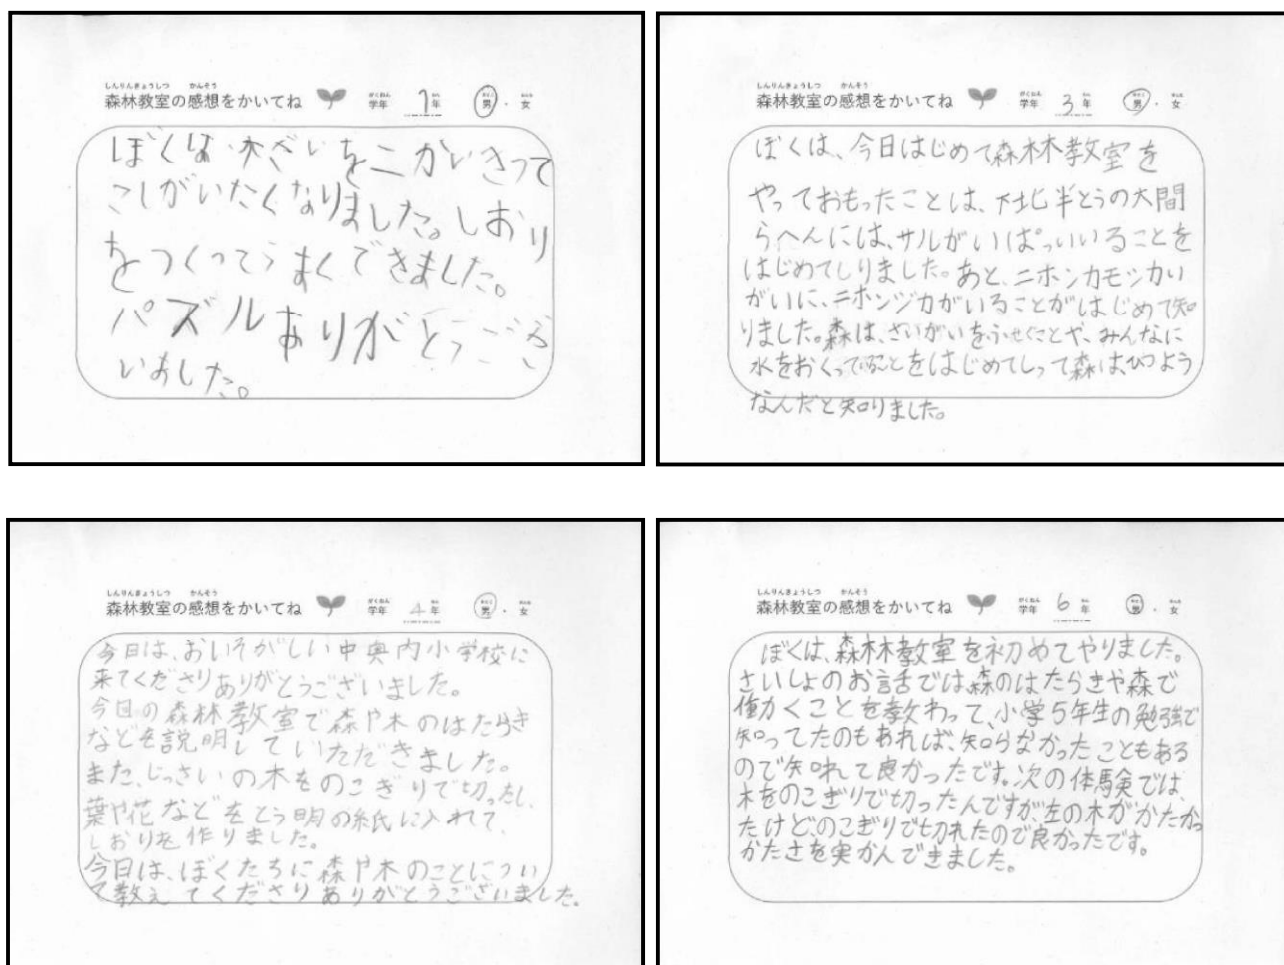 しんりんきょうしつ かんそう
森林教室の感想をかいてね
がくねん 学年 1 ねん 年 おとこ 男・おんな 女
ぼくは、木ざいを二かいきって
こしがいたくなりました。しおり
をつくってうまくできました。
パズルありがとうござ
いました。
しんりんきょうしつ かんそう
森林教室の感想をかいてね
がくねん 学年 3 ねん 年 おとこ 男・おんな 女
ぼくは、今日はじめて森林教室を
やっておもったことは、下北半とうの大間
らへんには、サルがいぱっいいることを
はじめてしりました。あと、ニホンカモシカい
がいに、ニホンジカがいることがはじめて知
りました。森は、さいがいをふせぐことや、みんなに
水をおくってることをはじめてしって森は、ひつよう
なんだと知りました。
しんりんきょうしつ かんそう
森林教室の感想をかいてね
がくねん 学年 4 ねん 年 おとこ 男・おんな 女
今日は、おいそがしい中奥内小学校に
来てくださりありがとうございました。
今回の森林教室で森や木のはたらき
などを説明していただきました。
また、じっさいの木をのこぎりで切ったし、
葉や花などをとう明の紙に入れて、
しおりを作りました。
今日は、ぼくたちに森や木のことについ
て教えてくださりありがとうございました。
しんりんきょうしつ かんそう
森林教室の感想をかいてね
がくねん 学年 6 ねん 年 おとこ 男・おんな 女
ぼくは、森林教室を初めてやりました。
さいしょのお話では森のはたらきや森で
働かくことを教わって、小学5年生の勉強で
知ってたのもあれば、知らなかったこともある
ので知れて良かったです。次の体験では、
木をのこぎりで切ったんですが、左の木がかたかっ
たけど、のこぎりで切れたので良かったです。
かたさを実かんできました。